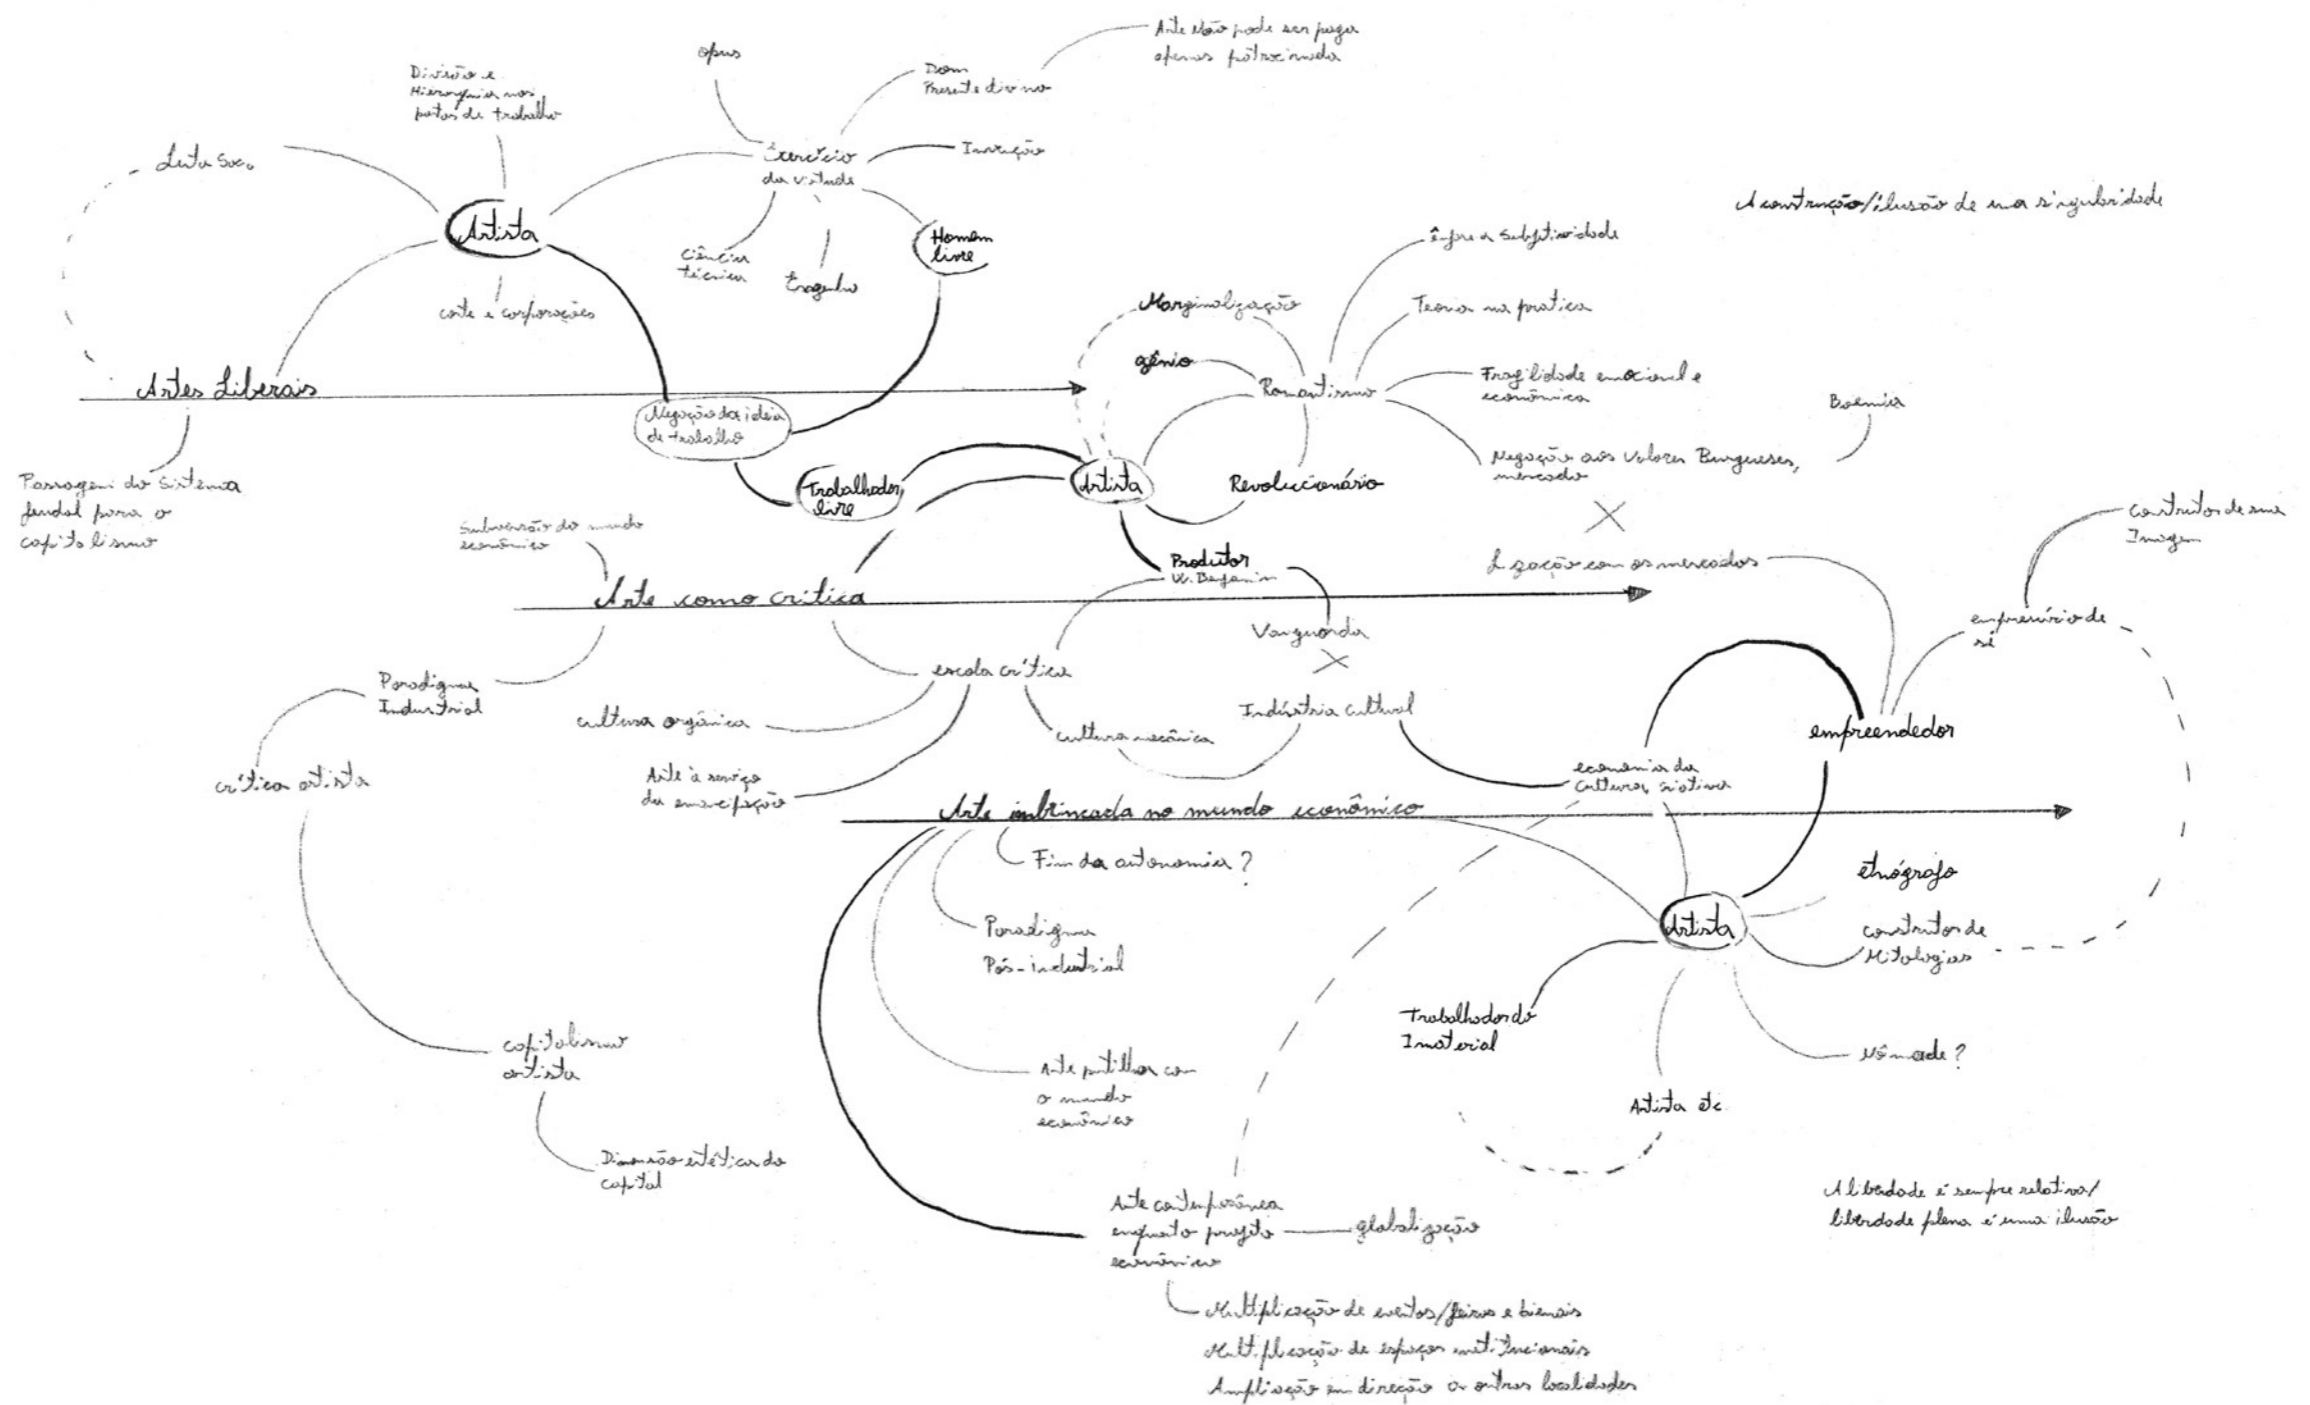 Arte Não pode ser paga
apenas patrocinada
opus
Divisão e
Hierarquia nos
postos de trabalho
Dom
Presente divino
Luta Soc.
Exercício
da virtude
Invenção
Artista
Homem
livre
Ciência
técnica
Engenho
corte e corporações
A construção/ilusão de uma singularidade
ênfase a Subjetividade
Marginalização
Teoria na pratica
gênio
Romantismo
Fragilidade emocional e
econômica
Boemia
Artes Liberais
Negação da ideia
de trabalho
Negação aos Valores Burgueses,
mercado
Passagem do Sistema
feudal para o
capitalismo
Trabalhador
livre
Artista
Revolucionário
X
construtor de sua
Imagem
Subversão do mundo
econômico
Produtor
W. Benjamin
Ligação com os mercados
Arte como crítica
Vanguarda
X
empresário de
si
Paradigma
Industrial
escola crítica
cultura orgânica
Indústria Cultural
cultura mecânica
empreendedor
crítica artista
Arte à serviço
da emancipação
economia da
cultura, criativa
Arte imbrincada no mundo econômico
Fim da autonomia?
etnógrafo
Artista
construtor de
Mitologias
Paradigma
Pós-industrial
Trabalhador do
Imaterial
capitalismo
artista
Arte partilha com
o mundo
econômico
Nômade?
Artista etc
Dimensão estética do
capital
Arte contemporânea
enquanto projeto
econômico
globalização
A liberdade é sempre relativa/
liberdade plena é uma ilusão
Multiplicação de eventos/feiras e bienais
Multiplicação de espaços institucionais
Ampliação em direção a outras localidades